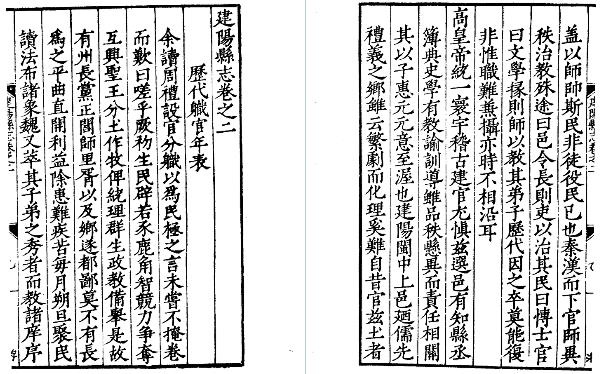 建陽縣志卷之二
歷代職官年表
余讀周禮設官分職以為民極之言未嘗不掩卷
而歎曰嗟乎厥初生民辟若豕鹿角智競力爭奪
互興聖王分土作牧俾統理群生政教備舉是故
有州長黨正閭師里胥以及鄉遂都鄙莫不有長
為之平曲直開利益除患難疾苦每月朔旦聚民
讀法布諸象魏又萃其子弟之秀者而教諸庠序
蓋以師師斯民非徒役民已也秦漢而下官師異
秩治教殊途曰邑令長則吏以治其民曰博士官
曰文學掾則師以教其弟子歷代因之卒莫能復
非惟職難兼攝亦時不相沿耳
高皇帝統一寰宇稽古建官尤慎茲選邑有知縣丞
簿典史學有教諭訓導雖品秩縣異而責任相關
其以子惠元元意至渥也建陽閩中上邑廼儒先
禮義之鄉雖云繁劇而化理奚難自昔官茲土者